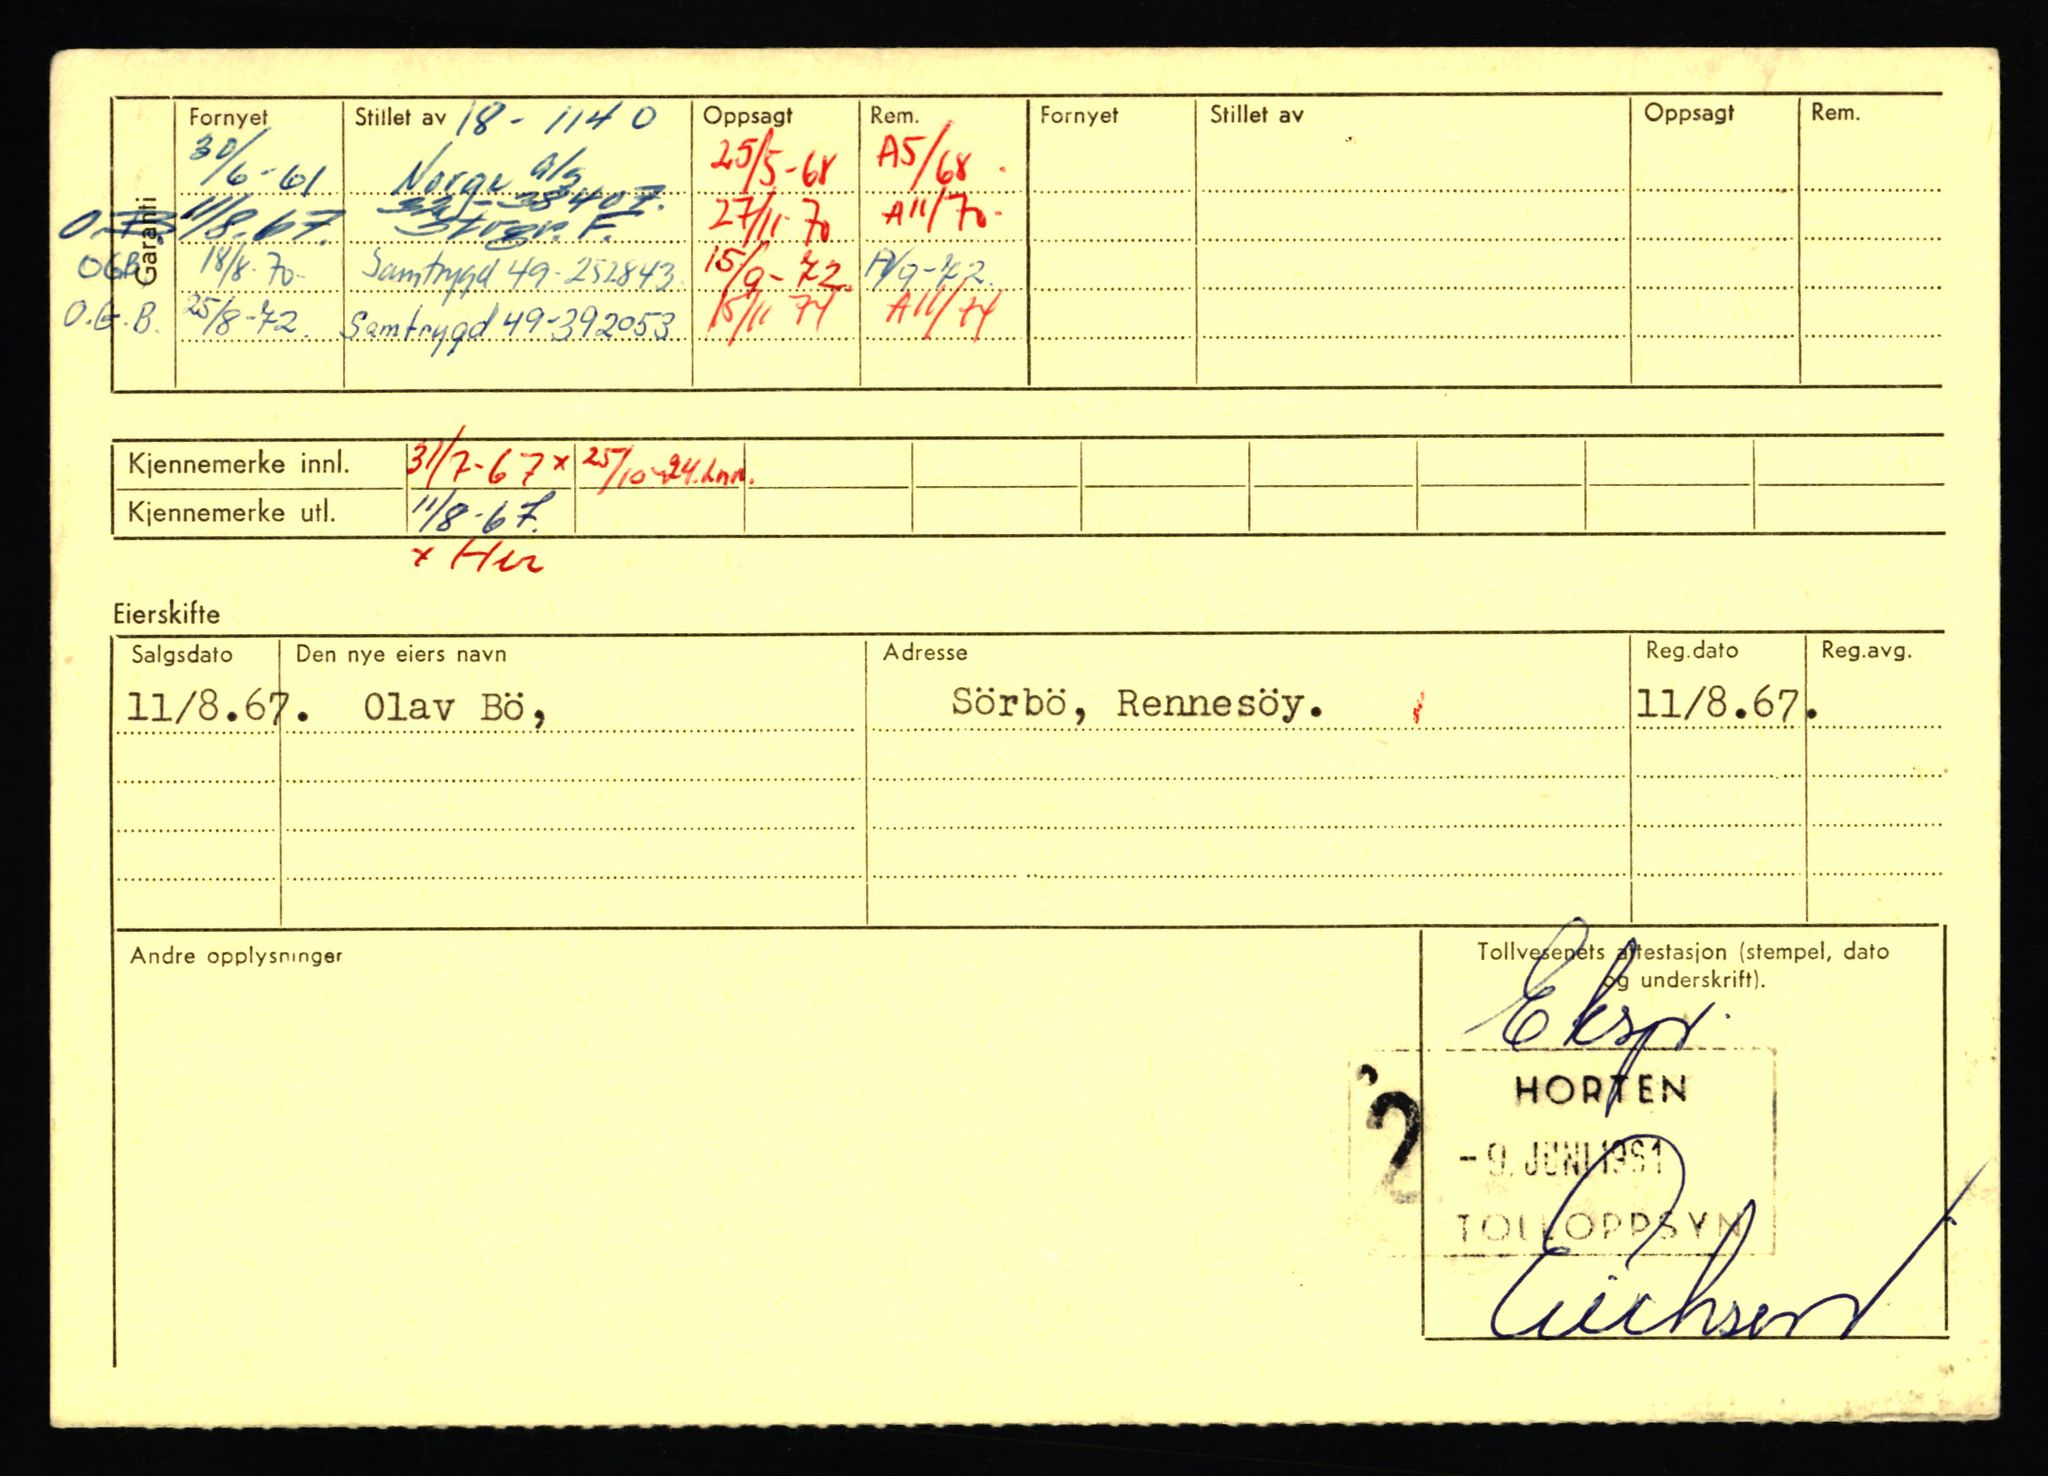 Garanti
Fornyet Stillet av 18-1140 Oppsagt Rem. Fornyet Stillet av Oppsagt Rem.
30/6-61 Norge a/s 25/5-68 A5/68
11/8.67. 27/11-70 A11/70-
OGB. 18/8-70- Samtrygd 49-252843. 15/9-72. A/9-72.
O.G.B. 25/8-72. Samtrygd 49-392053 15/11 74 A11/74
Kjennemerke innl. 31/7-67 x 25/10
Kjennemerke utl. 11/8-67.
x Her
Eierskifte
Salgsdato Den nye eiers navn Adresse Reg.dato Reg.avg.
11/8.67. Olav Bö, Sörbö, Rennesöy. 11/8.67.
Andre opplysninger
Tollvesenets attestasjon (stempel, dato
og underskrift).
Eksp.
HORTEN
2
-9. JUNI 1961
TOLLOPPSYN